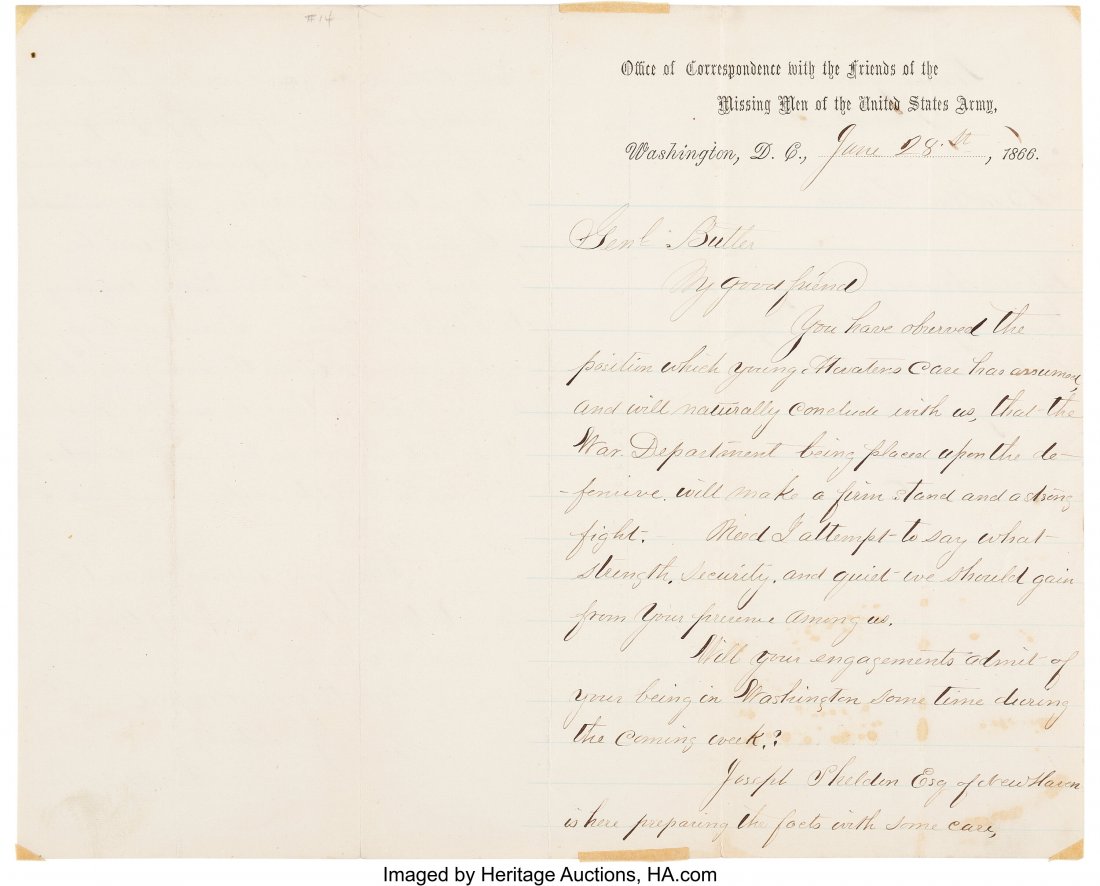 #14
Office of Correspondence with the Friends of the
Missing Men of the United States Army,
Washington, D. C., June 28th, 1866.
Genl Butler
My good friend
You have observed the
position which young Atwaters case has assumed,
and will naturally conclude with us, that the
War Department being placed upon the de-
-fensive, will make a firm stand and a strong
fight. Need I attempt to say what
strength, security, and quiet we should gain
from your presence among us.
Will your engagements admit of
your being in Washington some time during
the coming week?
Joseph Sheldon Esq of New Haven
is here preparing the facts with some care,
Imaged by Heritage Auctions, HA.com